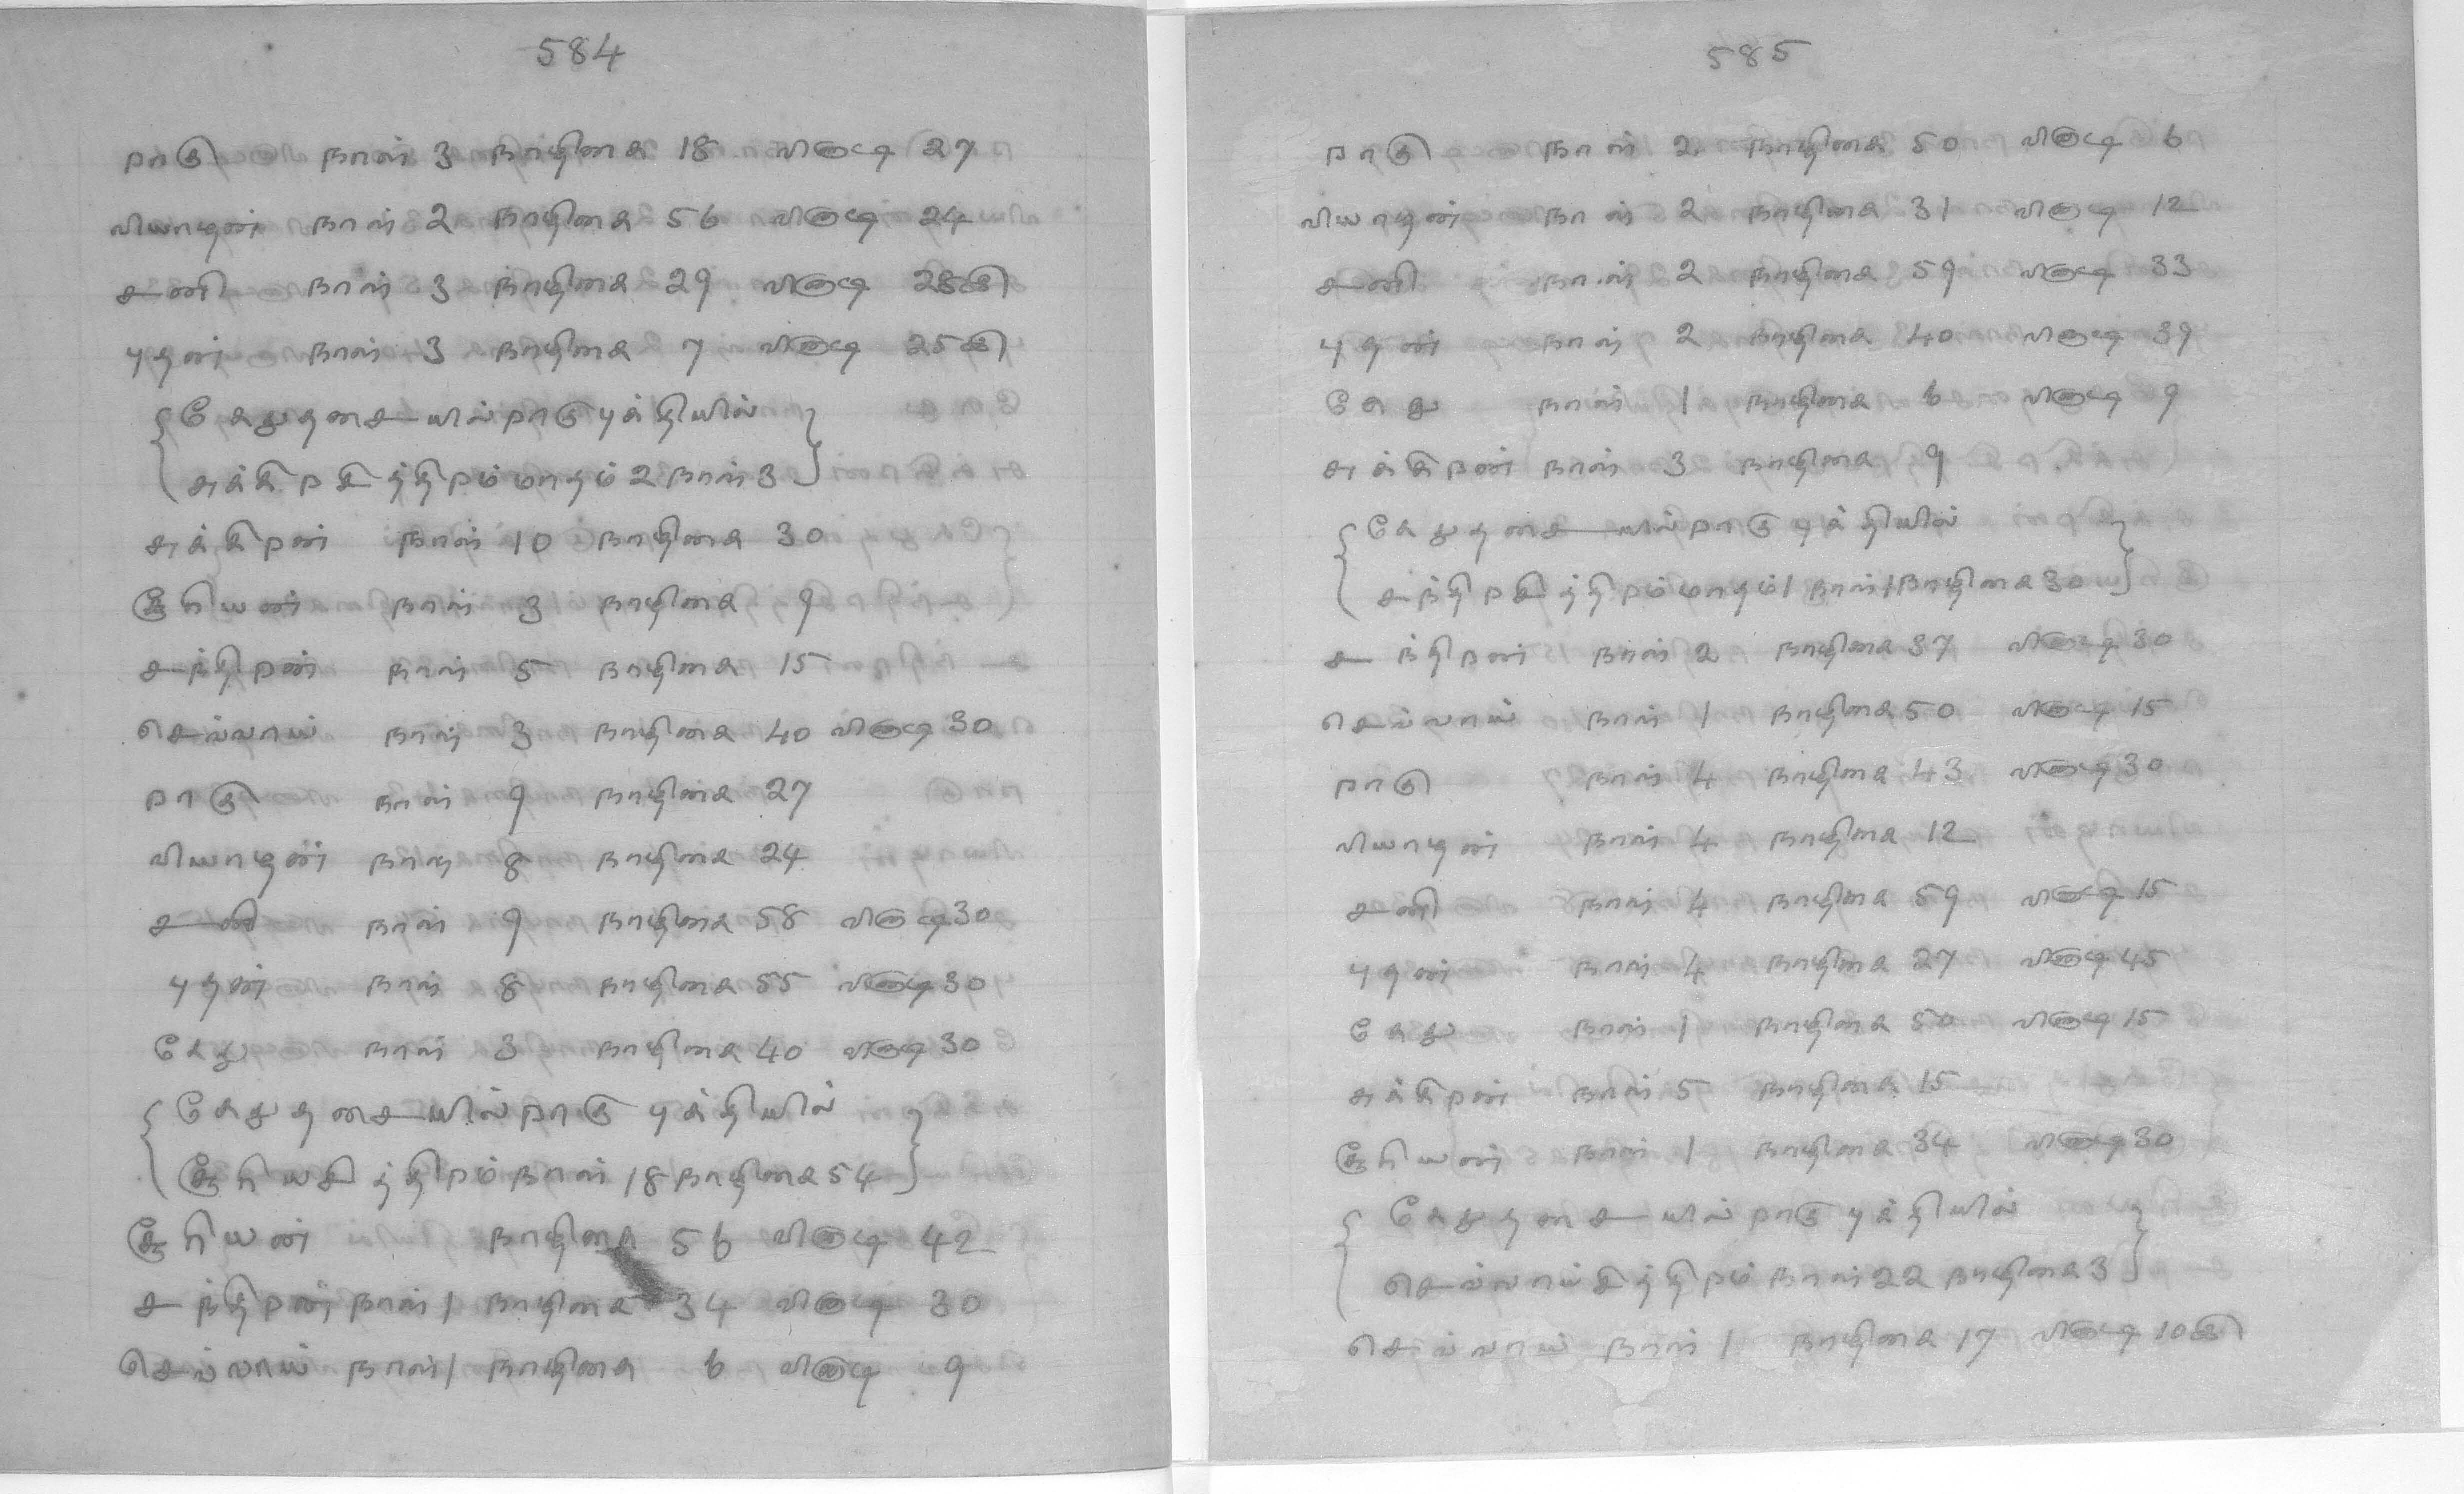 584
ராகு நாள் 3 நாழிகை 18 விநாடி 27
வியாழன் நாள் 2 நாழிகை 56 விநாடி 24
சனி நாள் 3 நாழிகை 29 விநாடி 28
புதன் நாள் 3 நாழிகை 7 விநாடி 25
{கேதுதசையில்ராகுபுக்தியில்}
{சுக்கிரசித்திரம்மாதம்2நாள்3}
சுக்கிரன் நாள் 10 நாழிகை 30
சூரியன் நாள் 3 நாழிகை 9
சந்திரன் நாள் 5 நாழிகை 15
செவ்வாய் நாள் 3 நாழிகை 40 விநாடி 30
ராகு நாள் 9 நாழிகை 27
வியாழன் நாள் 8 நாழிகை 24
சனி நாள் 9 நாழிகை 58 விநாடி 30
புதன் நாள் 8 நாழிகை 55 விநாடி 30
கேது நாள் 3 நாழிகை 40 விநாடி 30
{கேதுதசையில்ராகு புக்தியில்}
{சூரியசித்திரம்நாள் 18 நாழிகை 54}
சூரியன் நாழிகை 56 விநாடி 42
சந்திரன் நாள் 1 நாழிகை 34 விநாடி 30
செவ்வாய் நாள் 1 நாழிகை 6 விநாடி 9
585
ராகு நாள் 2 நாழிகை 50 விநாடி 6
வியாழன் நாள் 2 நாழிகை 31 விநாடி 12
சனி நாள் 2 நாழிகை 59 விநாடி 33
புதன் நாள் 2 நாழிகை 40 விநாடி 39
கேது நாள் 1 நாழிகை 6 விநாடி 9
சுக்கிரன் நாள் 3 நாழிகை 9
{கேதுதசையில்ராகு புக்தியில்}
{சந்திரசித்திரம்மாதம்1நாள்1நாழிகை30}
சந்திரன் நாள் 2 நாழிகை 37 விநாடி 30
செவ்வாய் நாள் 1 நாழிகை 50 விநாடி 15
ராகு நாள் 4 நாழிகை 43 விநாடி 30
வியாழன் நாள் 4 நாழிகை 12
சனி நாள் 4 நாழிகை 59 விநாடி 15
புதன் நாள் 4 நாழிகை 27 விநாடி 45
கேது நாள் 1 நாழிகை 50 விநாடி 15
சுக்கிரன் நாள் 5 நாழிகை 15
சூரியன் நாள் 1 நாழிகை 34 விநாடி 30
{கேதுதசையில் ராகு புக்தியில்}
{செவ்வாய்சித்திரம் நாள் 22 நாழிகை 3}
செவ்வாய் நாள் 1 நாழிகை 17 விநாடி 10